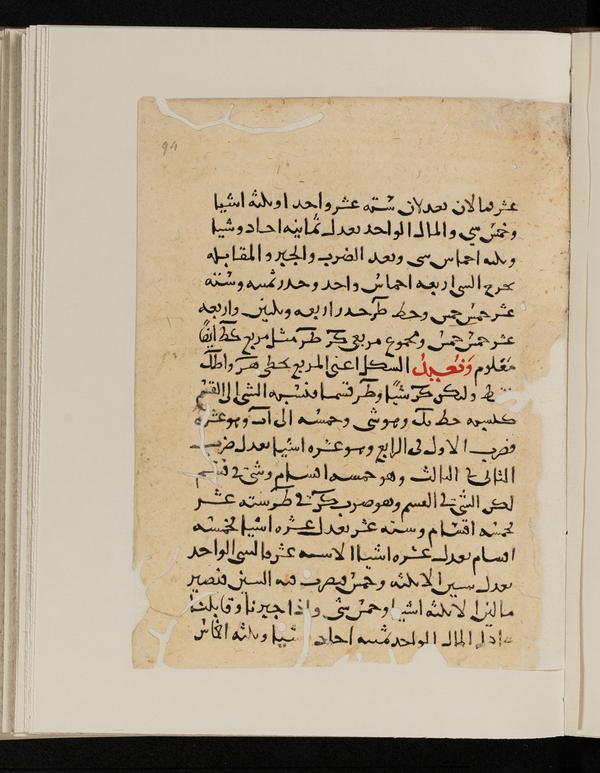 94
عشر فمالان يعدلان ستة عشر واحدا وثلثة اشيا
وخمس شي والمال الواحد يعدل ثمانيه احاد وشيا
وثلثه اخماس شي وبعد الضرب والجبر والمقابله
يخرج الشي اربعه اخماس واحد وجذر ثمنيه وسته
عشر خمس خمس وخط طح جذر اربعه وثلثين واربعه
عشر خمس خمس ومجموع مربعي كح طح مثل مربع كط ايضا
معلوم ونعيد الشكل اعني المربع بخطي هح واطك
نقط ولكن كح شيا وطح قسما فنسبه الشي الى القسم
كنسبه خط بك وهو شي وخمسه الى اب وهو عشره
فضرب الاول في الرابع وهو عشره اشيا يعدل ضرب
الثاني في الثالث وهو خمسه اقسام وشي في قسم
لكن الشي في القسم وهو ضرب كح في طح سته عشر
فخمسه اقسام وسته عشر يعدل عشره اشيا فخمسه
اقسام يعدل عشره اشيا الا سته عشر فالشي الواحد
يعدل شيين الا ثلثه وخمس فيضرب فيه الشي فيصير
مالين الا ثلثه اشيا وخمس شي واذا جبرنا وقابلنا
عادل المال الواحد ثمنيه احاد وشيا وثلثه اخماس